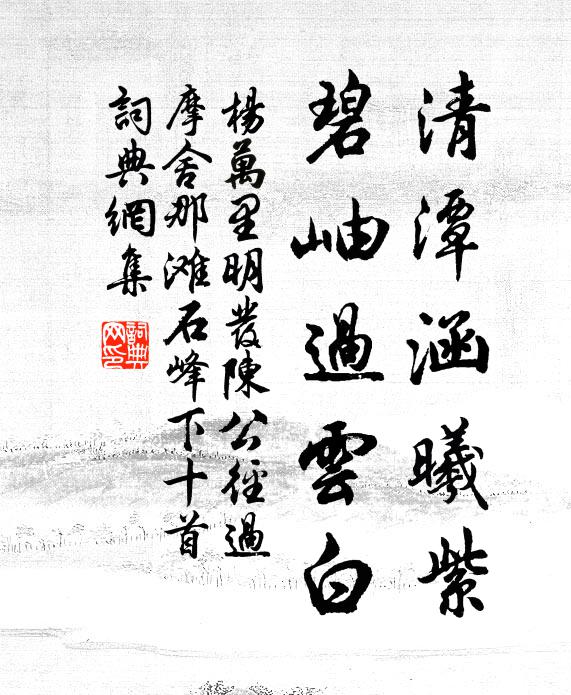 清潭涵曦紫
碧岫過雲白
楊萬里明發陳公徑過
摩舍那滩石峰下十首
詞典網集
詞典網印